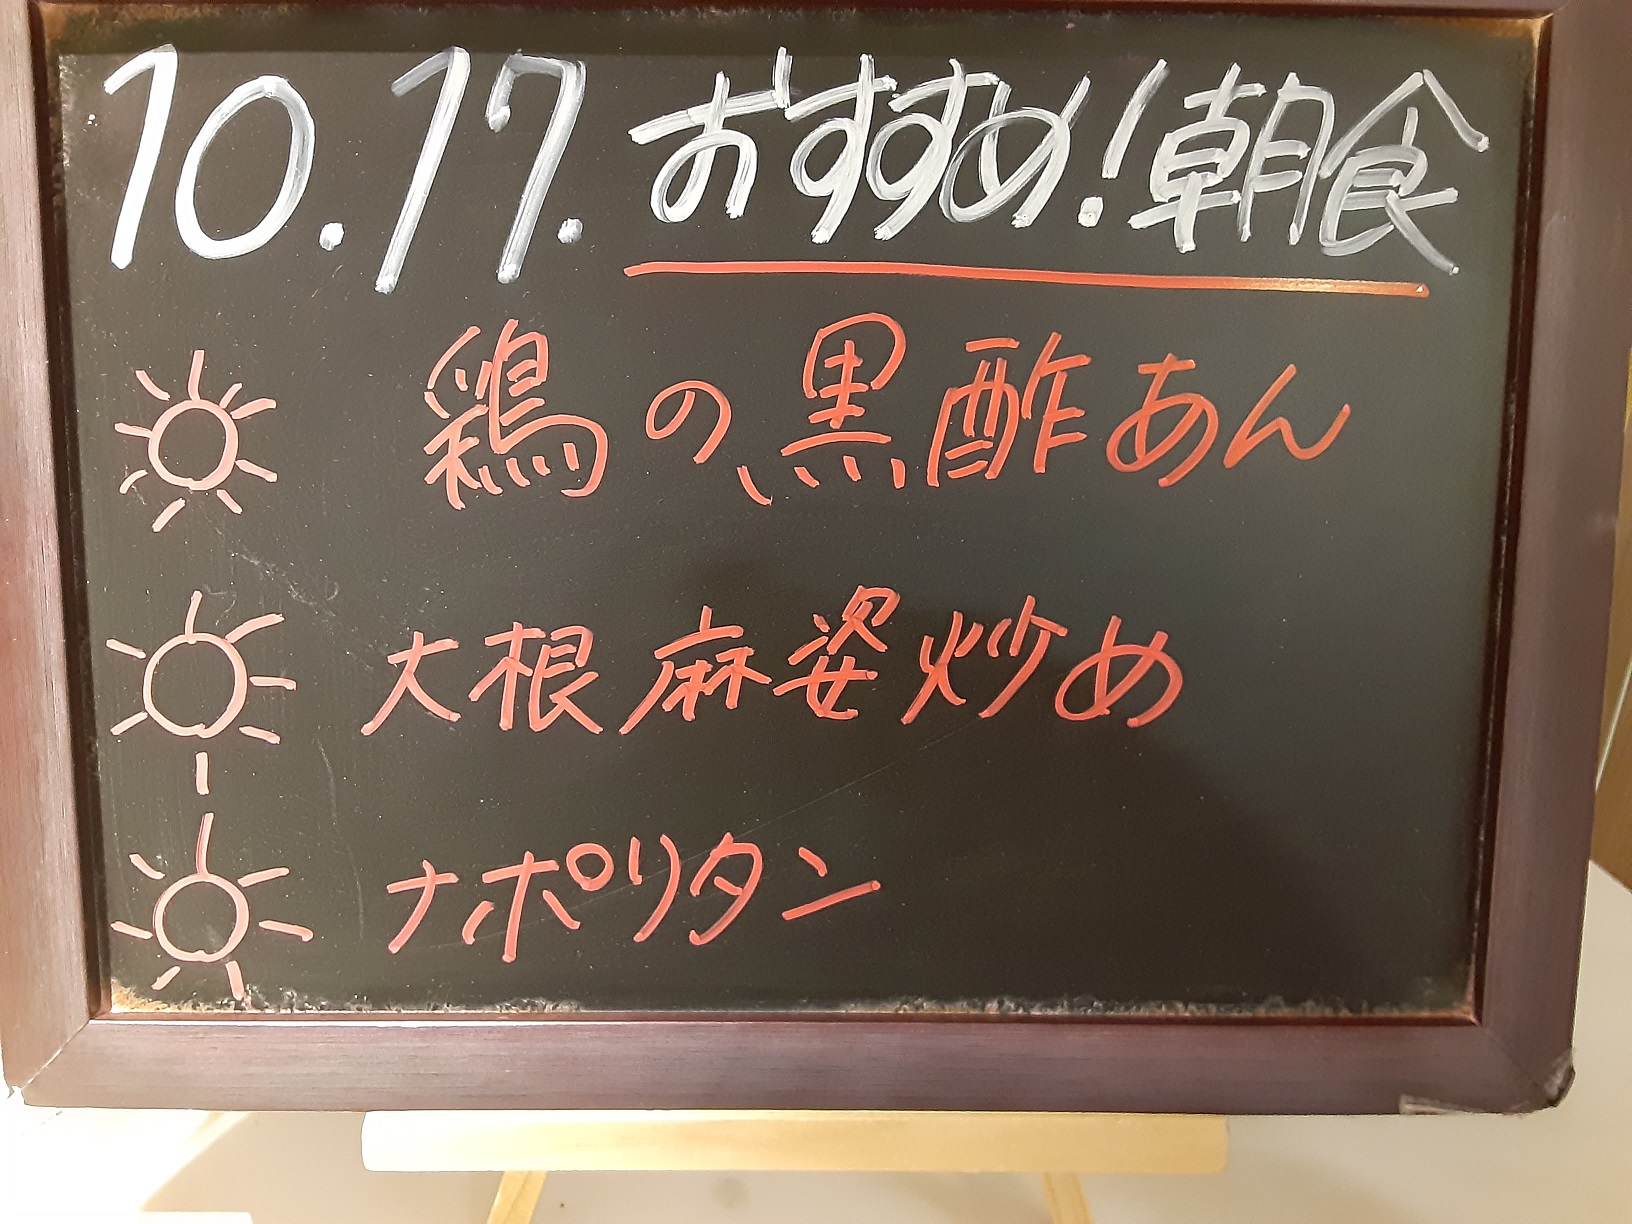 10.17. おすすめ!朝食
鶏の黒酢あん
大根麻姿炒め
ナポリタン